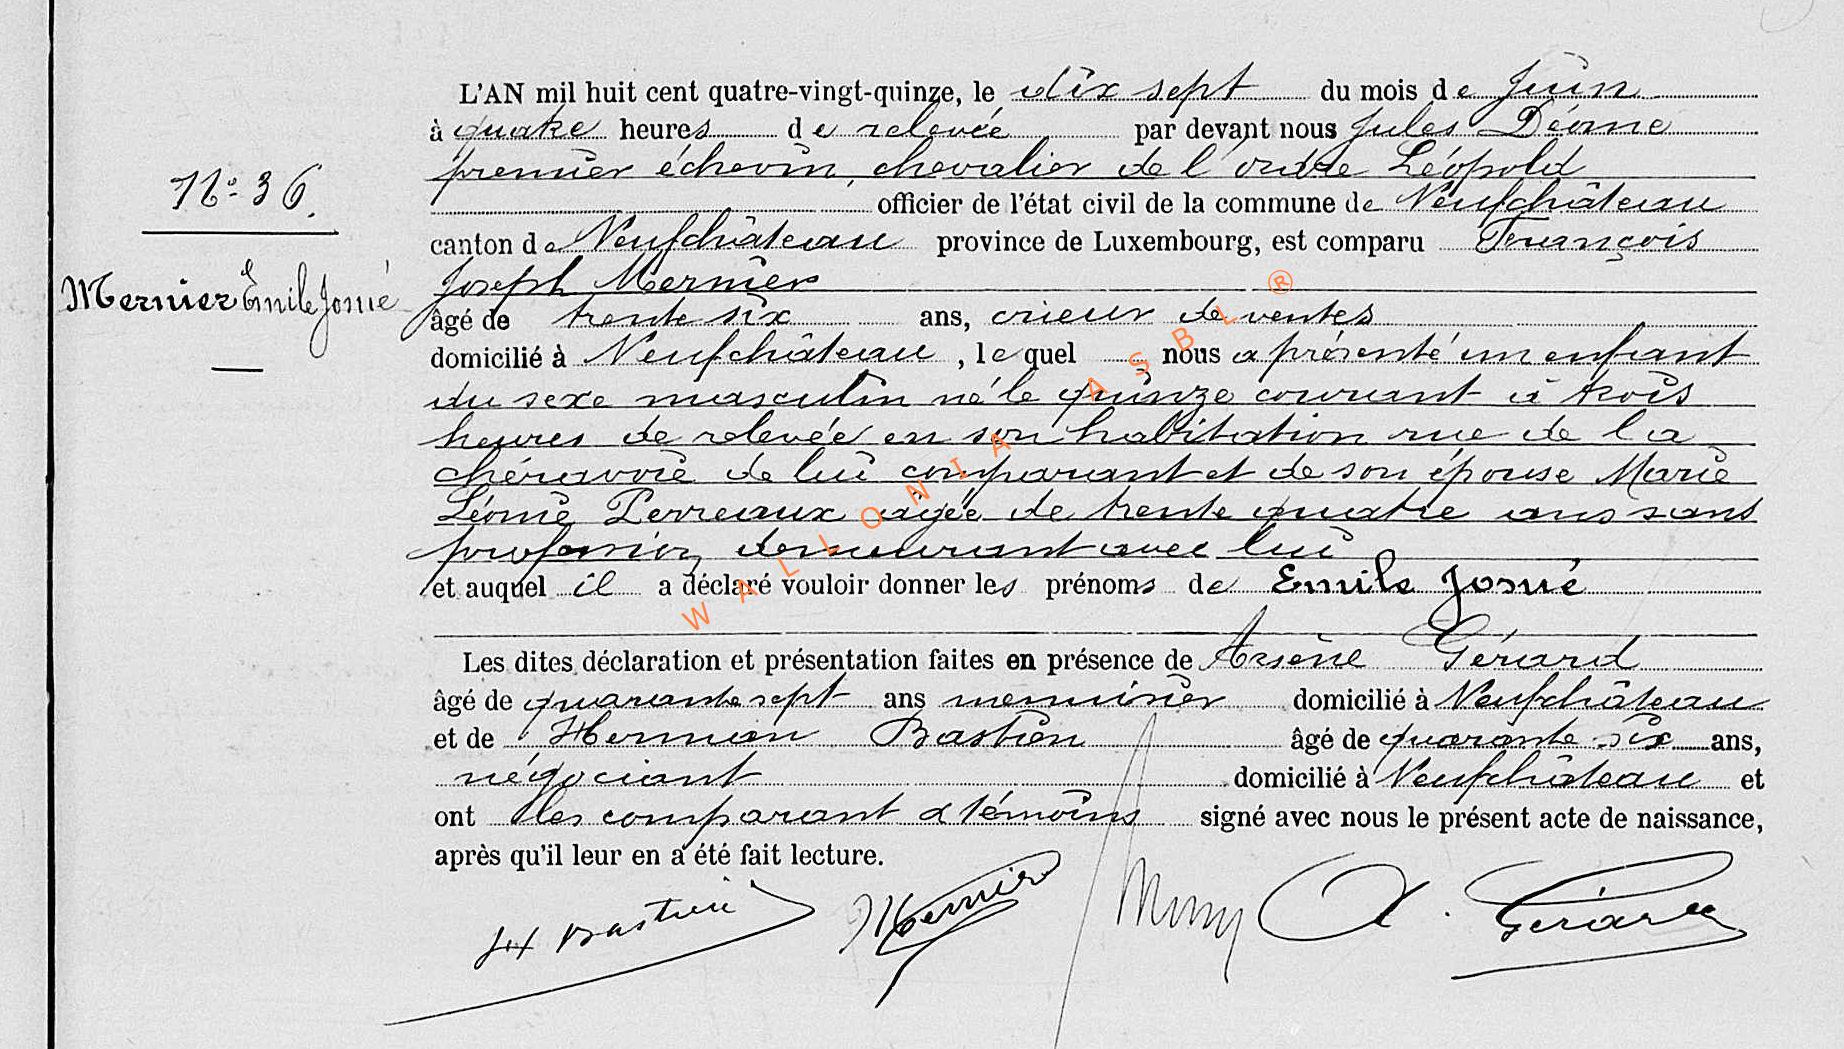 N° 36.
Mernier Emile Josué
L'AN mil huit cent quatre-vingt-quinze, le dix sept du mois de Juin
à quatre heures de relevée par devant nous Jules Déome
premier échevin, chevalier de l'ordre Léopold
officier de l'état civil de la commune de Neufchâteau
canton de Neufchâteau province de Luxembourg, est comparu François
Joseph Mernier
âgé de trente six ans, crieur de ventes
domicilié à Neufchâteau, lequel nous a présenté un enfant
du sexe masculin né le quinze courant à trois
heures de relevée en son habitation rue de la
chéravoie de lui comparant et de son épouse Marie
Léonie Perreaux agée de trente quatre ans sans
profession demeurant avec lui
et auquel il a déclaré vouloir donner les prénoms de Emile Josué
Les dites déclaration et présentation faites en présence de Arsène Gérard
âgé de quarante sept ans menuisier domicilié à Neufchâteau
et de Herman Bastien âgé de quarante six ans,
négociant domicilié à Neufchâteau et
ont les comparant & témoins signé avec nous le présent acte de naissance,
après qu'il leur en a été fait lecture.
H Bastien Mernier A. Gérard
WALLONIA ASBL ®